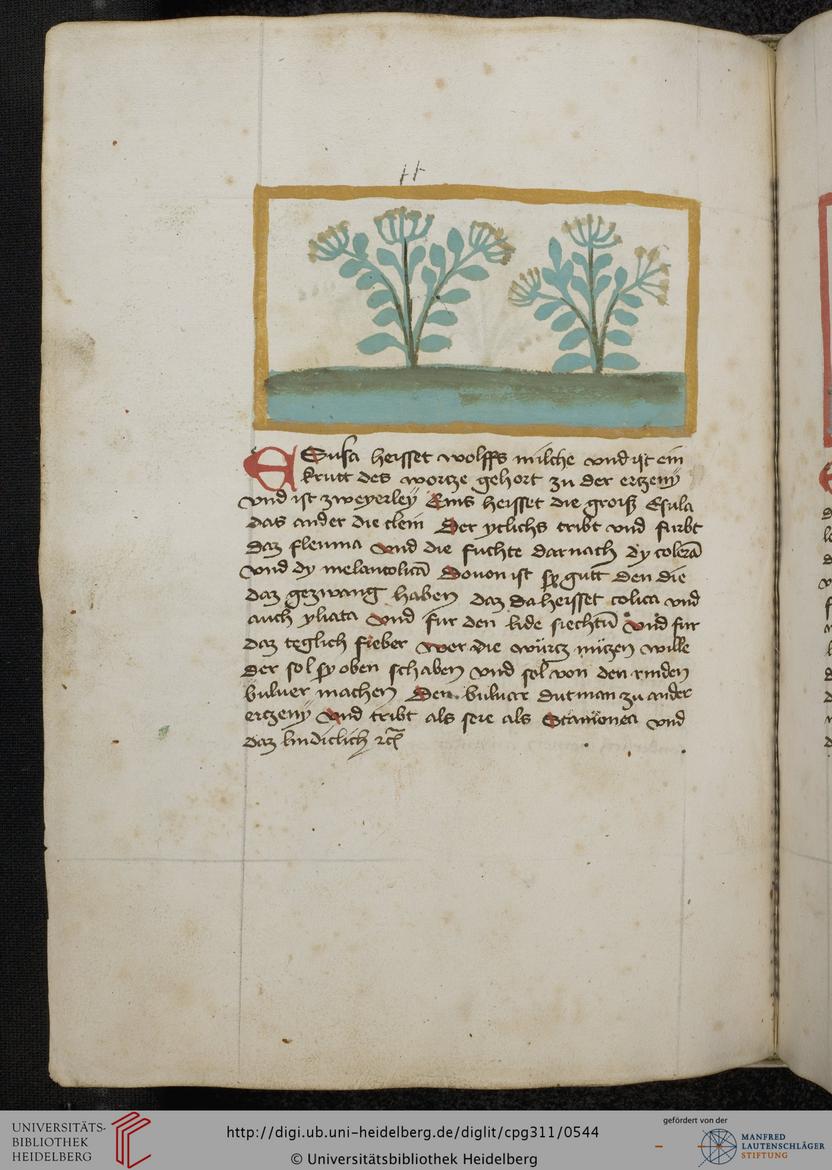 ESusa heisset wolffs milche vnd ist ein
krutt des wortze gehort zu der ertzeny
vnd ist zweyerley Eins heisset die groiß Esula
das ander die clein Der ytlichs tribt vnd furbt
daz fleuma vnd die fuchte darnach dy colerā
vnd dy melancolicā Douon ist sy gutt den die
daz gezwang haben daz da heisset colica vnd
auch yliaca vnd fur den lide siechtū vnd fur
daz teglich fieber wer die würtz nützen wille
der sol sy oben schaben vnd sol von den rinden
buluer machen Den buluer dut man zu ander
ertzeny vnd tribt als sere als Scamonea vnd
daz lindiclich
UNIVERSITÄTS-
BIBLIOTHEK
HEIDELBERG
http://digi.ub.uni-heidelberg.de/diglit/cpg311/0544
© Universitätsbibliothek Heidelberg
gefördert von der
MANFRED
LAUTENSCHLÄGER
STIFTUNG